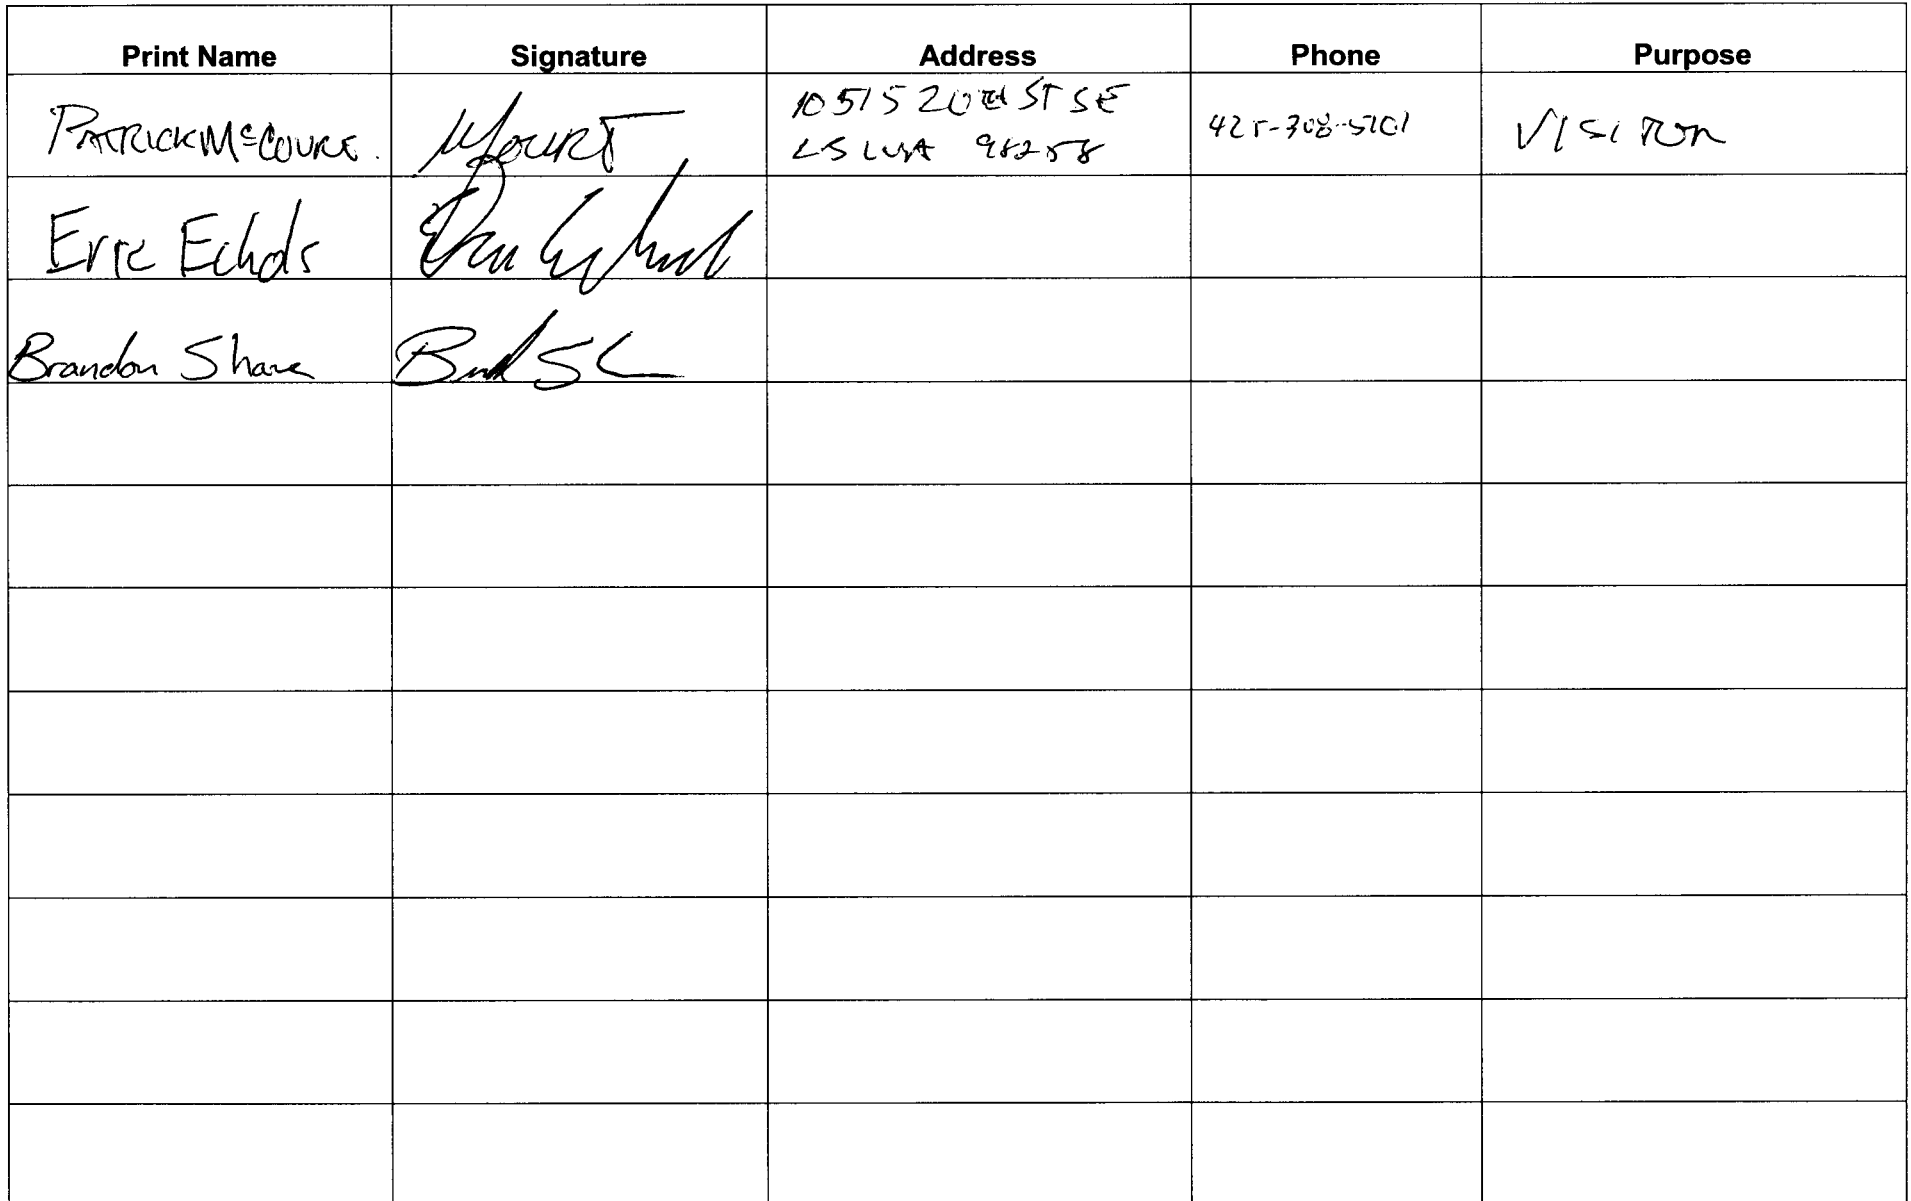 Print Name Signature Address Phone Purpose
PATRICK McCOURT. 10515 20th ST SE 425-308-5701 VISITOR
LS WA 98258
Eric Echols
Brandon Shane